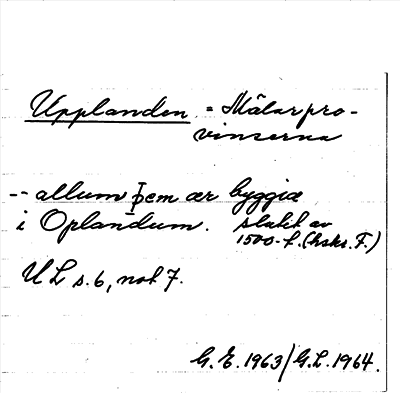 Upplanden = Mälarpro-
vinserna
-- allum þem ær byggiæ
i Oplandum. slutet av
1500-t. (hskr. F.)
UL s. 6, not 7.
G.E. 1963/G.L. 1964.